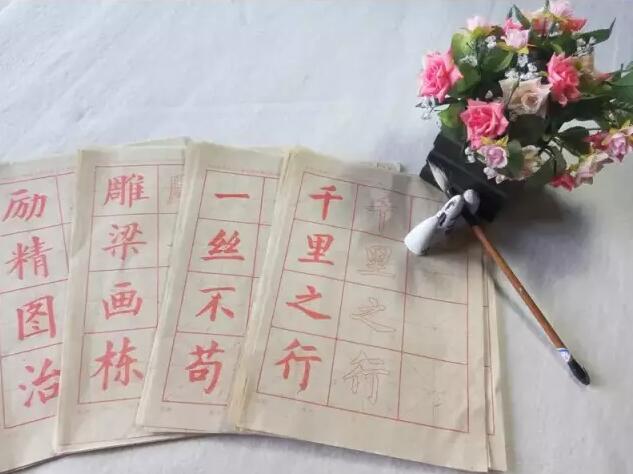 励精图治
雕梁画栋
一丝不苟
千里之行
千里之行